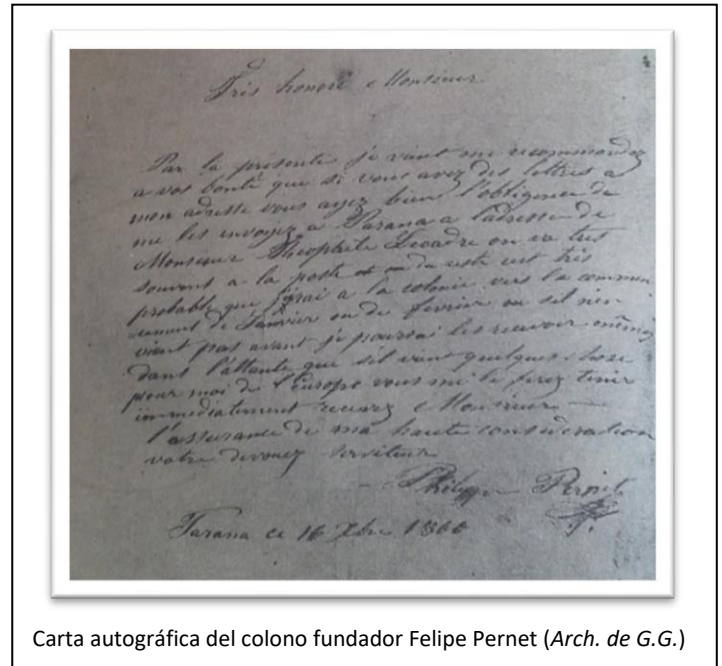 Tris honoré Monsieur
Par la présente je vient me recommandez
a vos bonté que si vous avez des lettres a
mon adresse vous ayez bien l'obligence de
me les envoyez a Parana a l'adresse de
Monsieur Théophile on va
souvent a la poste et ou du reste est très
probable que j'irai a la colonie vers la commen
cement de Janvier ou de fevrier ou sil n'en
vient pas avant je pourrai les recevoir
dans l'attente que sil vient quelque chose
pour moi de l'Europe vous me le ferez tenir
immediatement recevez Monsieur
l'assurance de ma haute consideration
votre devouez serviteur
Philippe Pernet
Parana ce 16 1860
Carta autográfica del colono fundador Felipe Pernet (Arch. de G.G.)